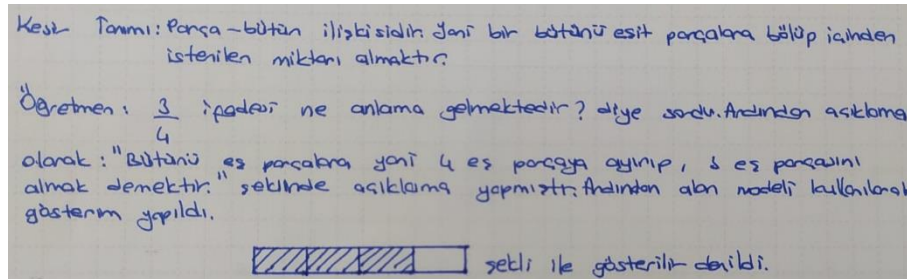 Kesir Tanımı: Parça-bütün ilişkisidir. Yani bir bütünü eşit parçalara bölüp içinden
istenilen miktarı almaktır.
Öğretmen: 3/4 ifadesi ne anlama gelmektedir? diye sordu. Ardından açıklama
olarak: "Bütünü eş parçalara yani 4 eş parçaya ayırıp, 3 eş parçasını
almak demektir." şeklinde açıklama yapmıştır. Ardından alan modeli kullanılarak
gösterim yapıldı.
şekli ile gösterilir denildi.